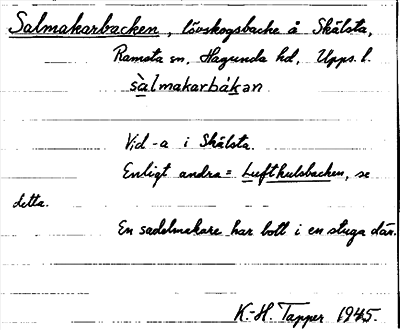 Salmakarbacken, lövskogsbacke å Skälsta,
Ramsta sn, Hagunda hd, Upps. l.
sàlmakarbákan
Vid -a i Skälsta.
Enligt andra = Lufthulsbacken, se
detta.
En sadelmakare har bott i en stuga där.
K.-H. Tapper 1945